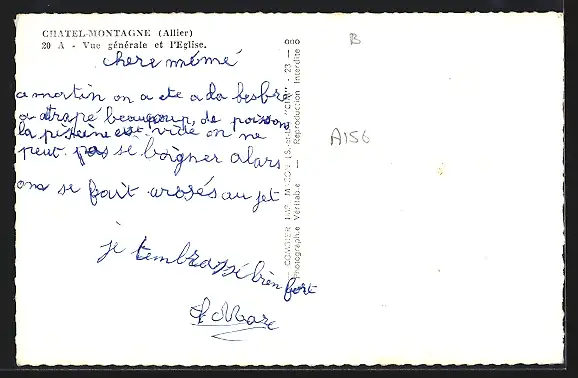 CHATEL-MONTAGNE (Allier)
20 A - Vue générale et l'Eglise.
chere mémé
a martin on a ete a la besbre
a atrapé beaucoup de poisson
la pissine est vide on ne
peut pas se baigner alars
on se fait arosés au jet
je t'embrassé bien fort
Marc
COMBIER IMP. MACON (S.-et-L.) "CIM" - 23 -
Photographie Véritable - Reproduction Interdite
B
A156